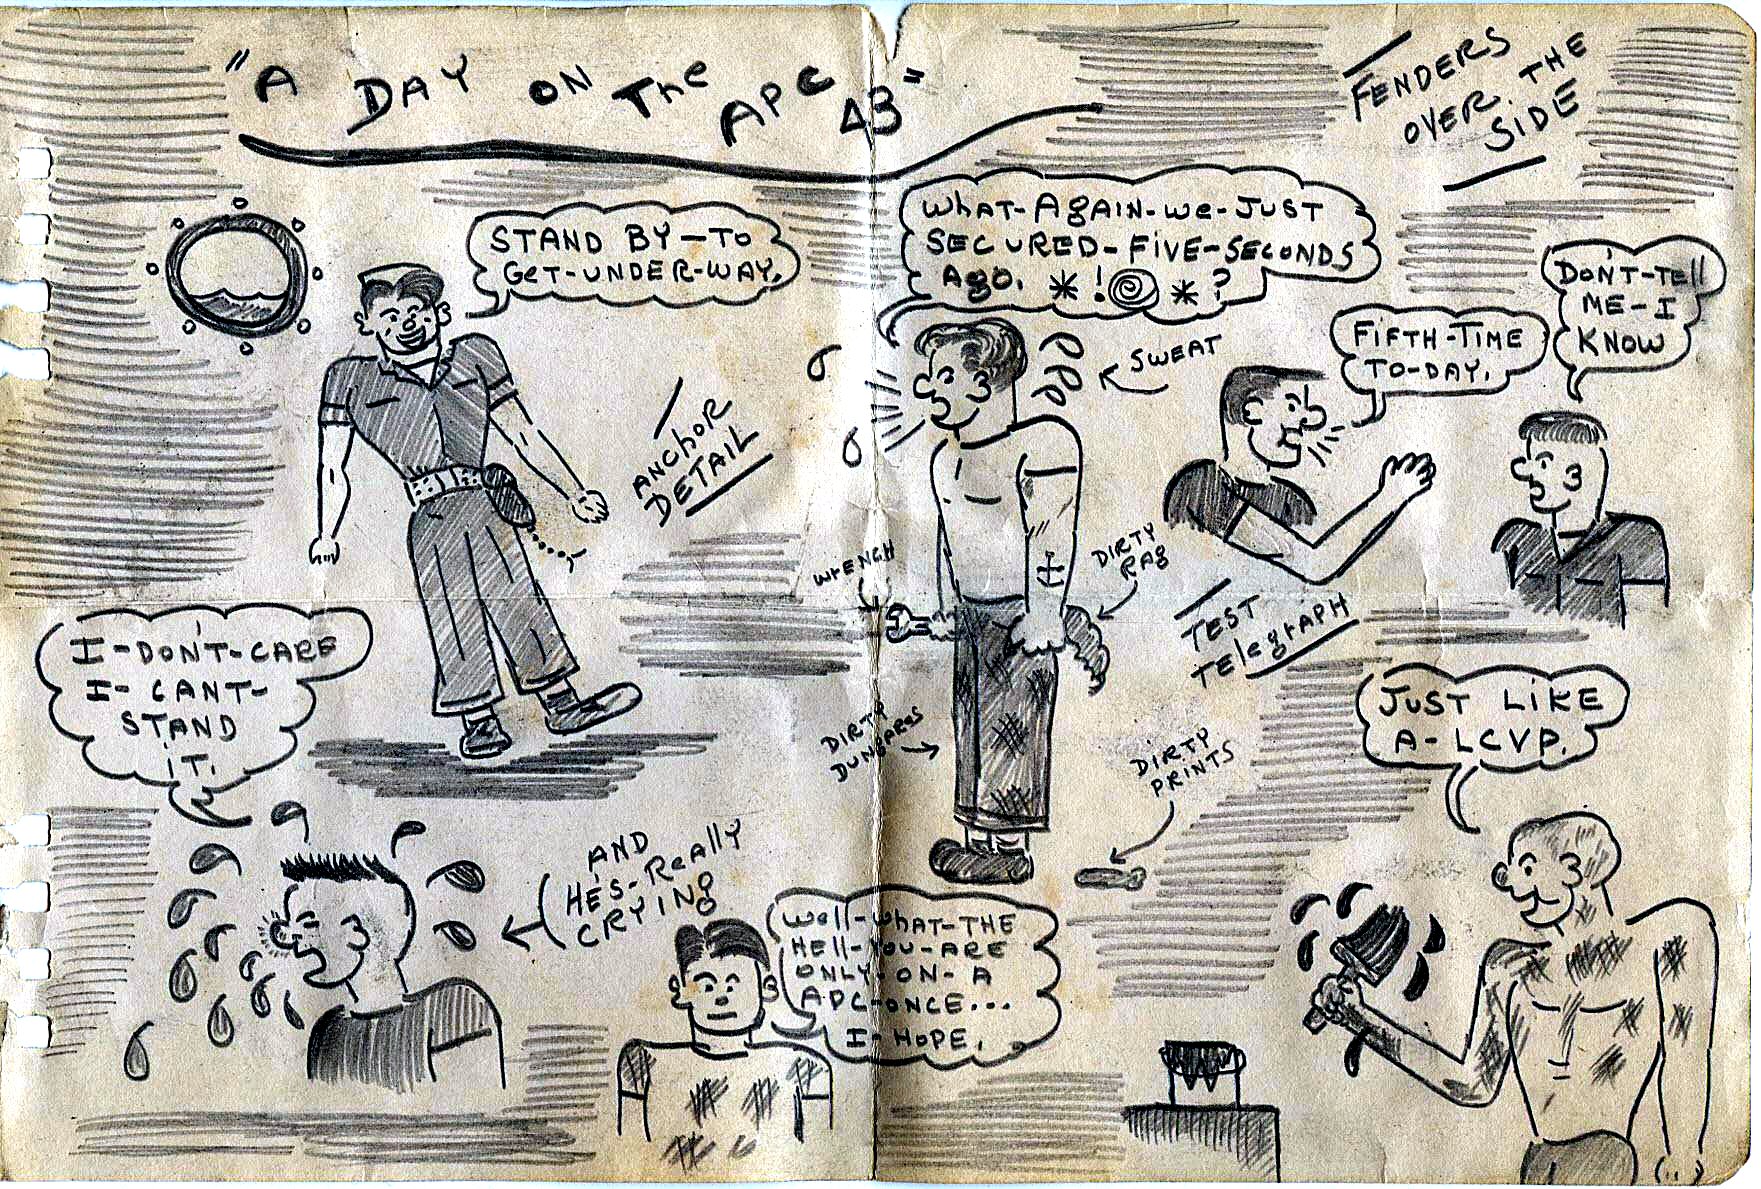 "A DAY ON The APC 43"
FENDERS
OVER THE
SIDE
STAND BY-TO
GeT-UNDER-WAY.
WhAT-AgAIN-We-JUST
SECURED-FIVE-SECONDS
Ago. *!@*?
DON'T-TEll
ME-I
KNOW
FIFTH-TIME
TO-DAY.
SWEAT
ANChOR
DETAIL
WrENCH
DIRTY
RAg
TEST
TElegrAPH
I-DON'T-CARE
I-CANT-
STAND
IT.
JUST LIKE
A-LCVP.
DIRTY
DUNgAReS
DIRTY
PRINTS
AND
HES-ReAllY
CRYINg
Well-WhAT-THE
HEll-YOU-ARE
ONLY-ON-A
APC-ONCE...
I-HOPE.